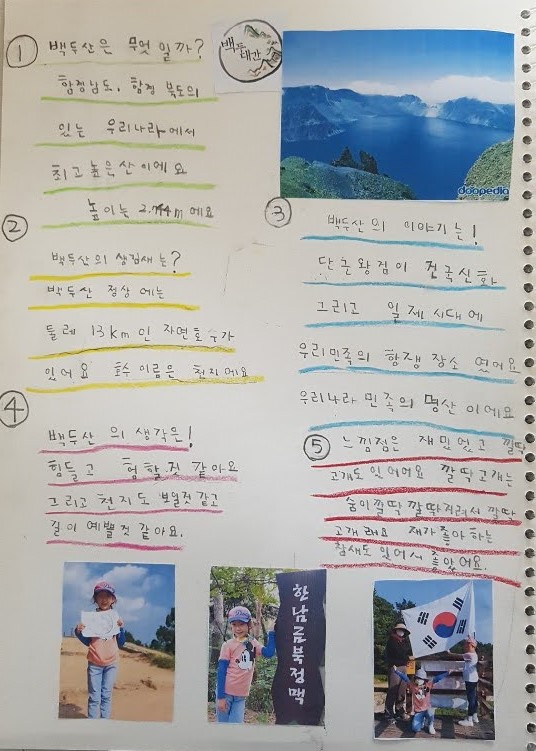 ① 백두산은 무엇일까?
함경남도, 함경 북도의
있는 우리나라에서
최고 높은산이에요
높이는 2.744m에요
백두
대간
doopedia
②
백두산의 생김새는?
백두산 정상 에는
둘레 13km인 자연호수가
있어요 호수 이름은 천지에요
③
백두산의 이야기는!
단군왕검이 건국신화
그리고 일제시대에
우리민족의 항쟁 장소 였어요
우리나라 민족의 명산 이에요
④
백두산 의 생각은!
힘들고 험할것 같아요
그리고 천지도 보일것 같고
길이 예쁠것 같아요.
⑤ 느낌점은 재밌었고 깔딱
고개도 있어어요 깔딱고개는
숨이깔딱 깔딱거려서 깔딱
고개래요 재가좋아 하는
참새도 있어서 좋았어요.
한남금북정맥